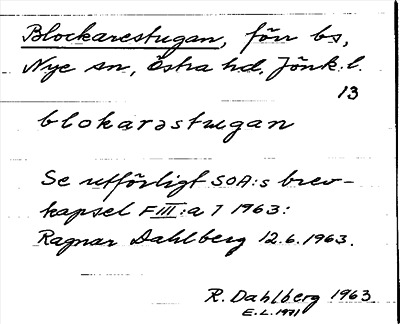 Blockarestugan, förr bs,
Nye sn, Östra hd, Jönk. l.
13
blokarəstugan
Se utförligt SOA:s brev-
kapsel F III:a 7 1963:
Ragnar Dahlberg 12.6.1963.
R. Dahlberg 1963
E.L. 1971